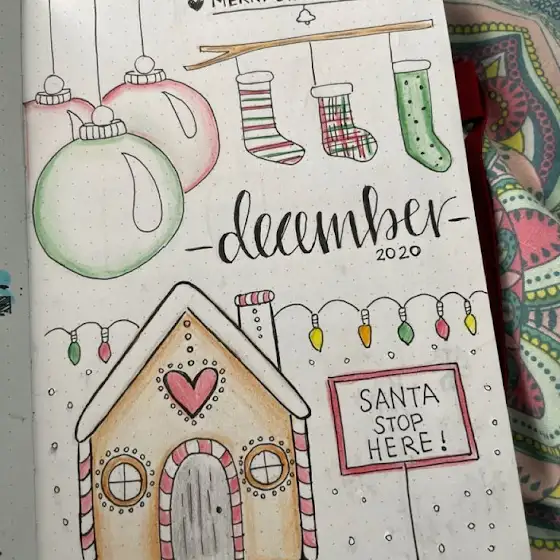 -december-
2020
SANTA
STOP
HERE!